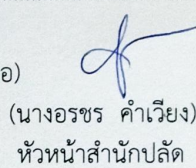 อ)
(นางอรชร คำเวียง)
หัวหน้าสำนักปลัด